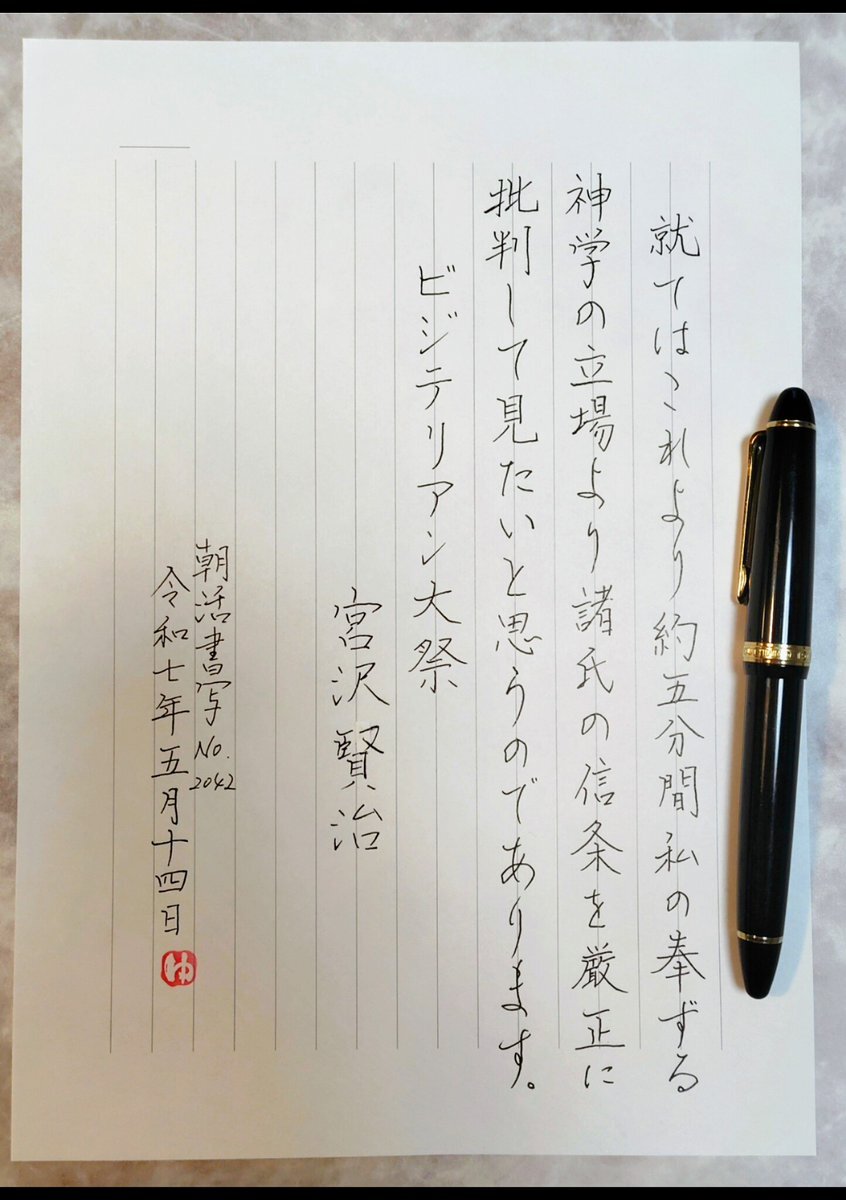 就てはこれより約五分間私の奉ずる
神学の立場より諸氏の信条を厳正に
批判して見たいと思うのであります。
ビジテリアン大祭
宮沢賢治
朝活書写No.2042
令和七年五月十四日
ゆ